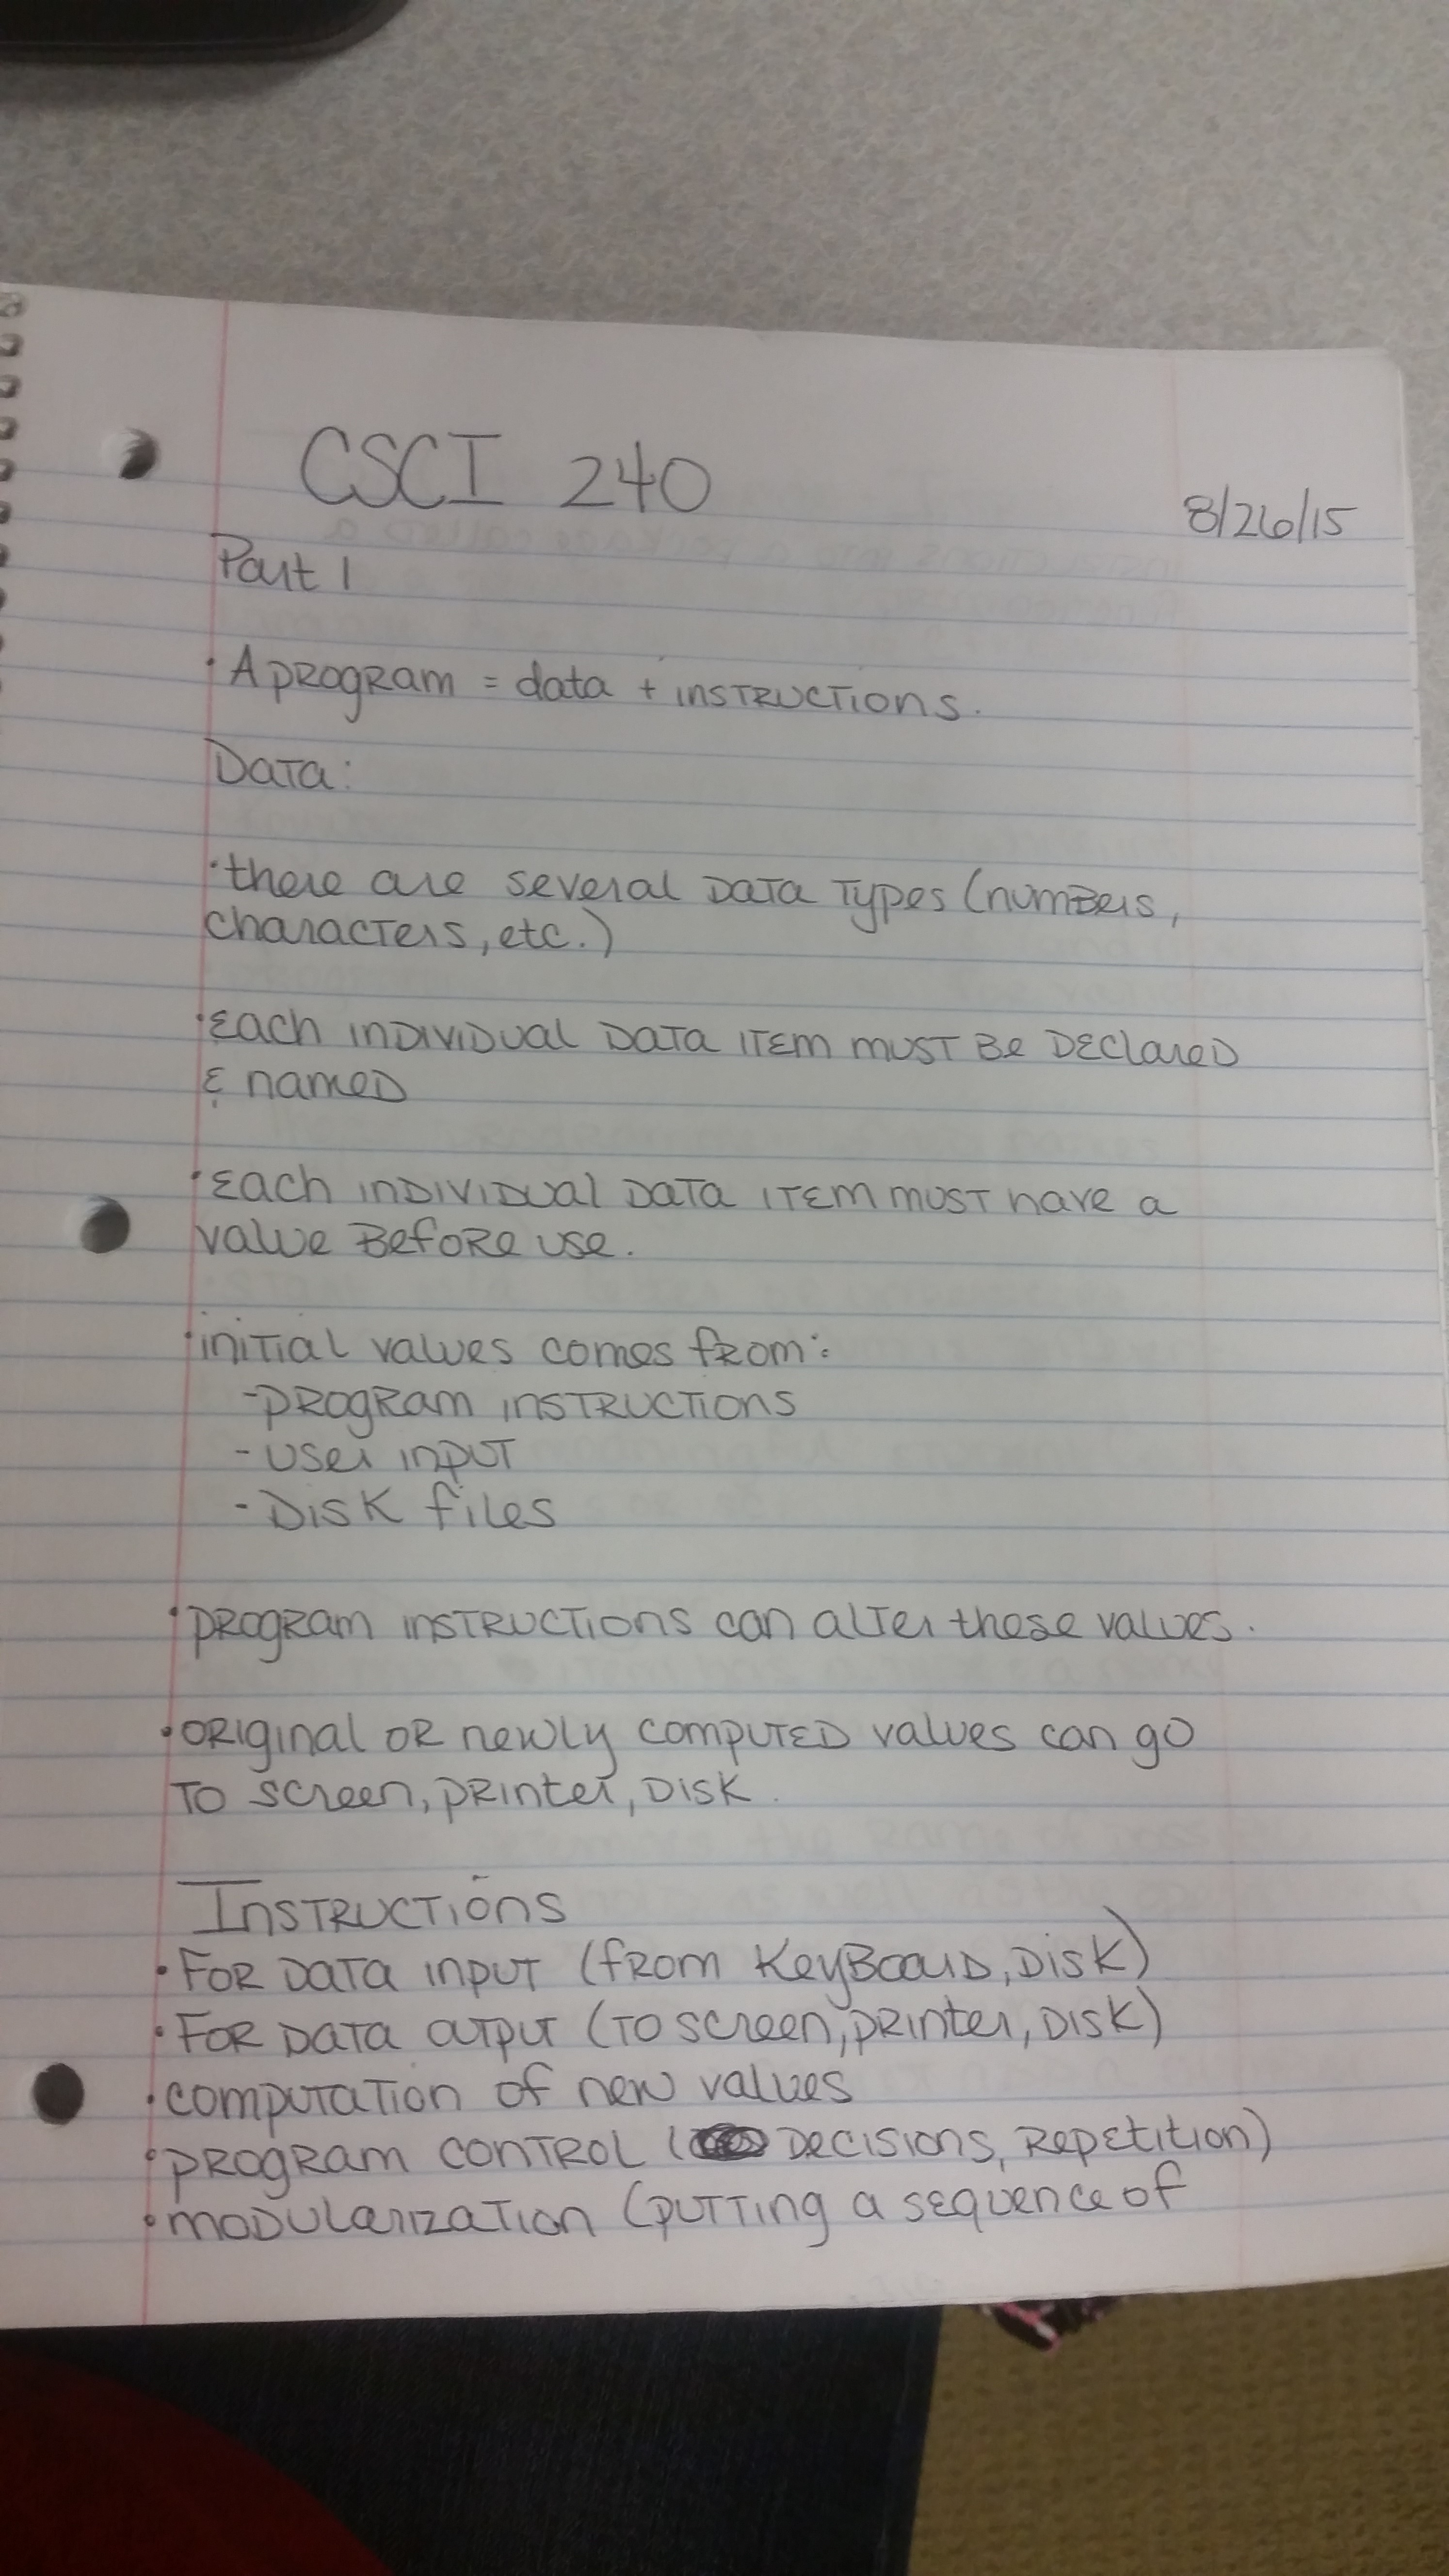 CSCI 240
8/26/15
Part 1
· A program = data + instructions.
Data:
· there are several data types (numbers,
characters, etc.)
· Each individual data item must be declared
& named
· Each individual data item must have a
value before use.
· initial values comes from:
- program instructions
- user input
- Disk files
· program instructions can alter these values.
· original or newly computed values can go
to screen, printer, disk.
Instructions
· For data input (from keyboard, disk)
· For data output (to screen, printer, disk)
· computation of new values
· program control ( decisions, repetition)
· modularization (putting a sequence of